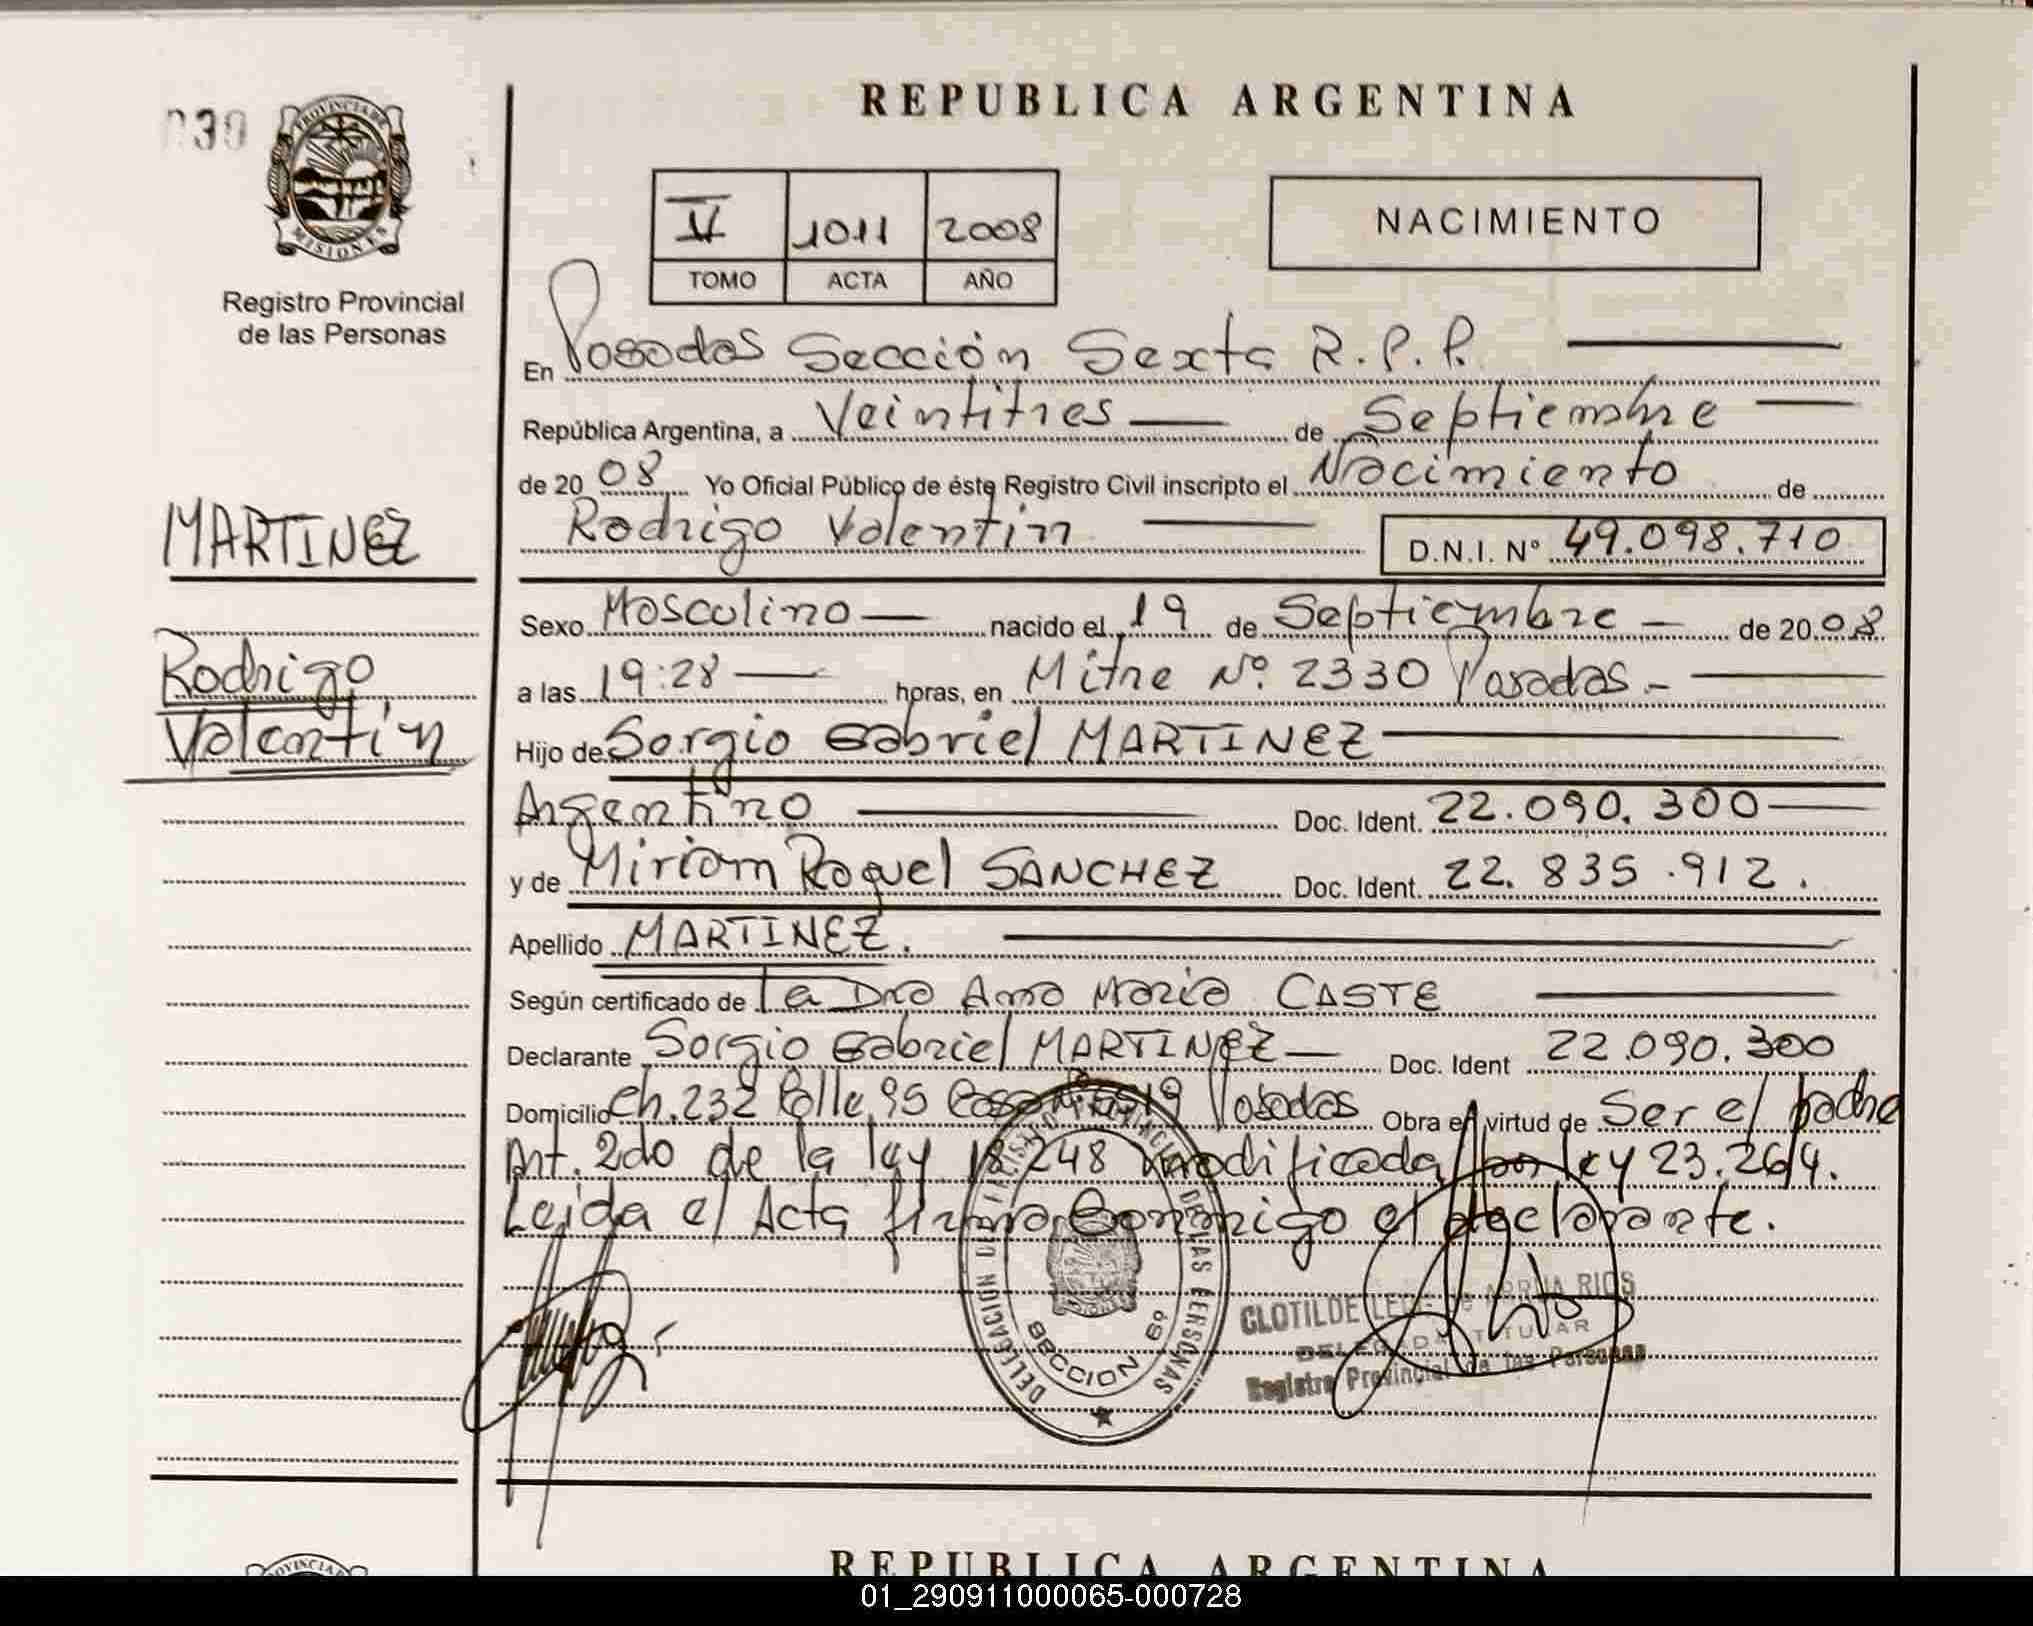 030
PROVINCIA DE
MISIONES
Registro Provincial
de las Personas
REPUBLICA ARGENTINA
1011 2008
TOMO ACTA AÑO
NACIMIENTO
En Posadas Sección Sexta R.P.P.
República Argentina, a Veintitres de Septiembre
de 2008 Yo Oficial Público de éste Registro Civil inscripto el Nacimiento de
Rodrigo Valentin D.N.I. N° 49.098.710
MARTINEZ
Rodrigo
Valentin
Sexo Masculino nacido el 19 de Septiembre de 2008
a las 19:28 horas, en Mitre Nº 2330 Posadas.-
Hijo de Sergio Gabriel MARTINEZ
Argentino Doc. Ident. 22.090.300
y de Miriam Raquel SANCHEZ Doc. Ident. 22.835.912.
Apellido MARTINEZ.
Según certificado de la Dra Ana Maria CASTE
Declarante Sergio Gabriel MARTINEZ Doc. Ident 22.090.300
Domicilio Ch. 232 Calle 95 Casa Posadas Obra en virtud de Ser el padre
Art. 2do de la ley 18.248 modificada por ley 23.264.
Leida el Acta firma Conmigo el declarante.
DE LAS PERSONAS
SECCION 6º
CLOTILDE RIOS
DELEGADA TITULAR
Registro Provincial de las Personas
REPUBLICA ARGENTINA
01_290911000065-000728